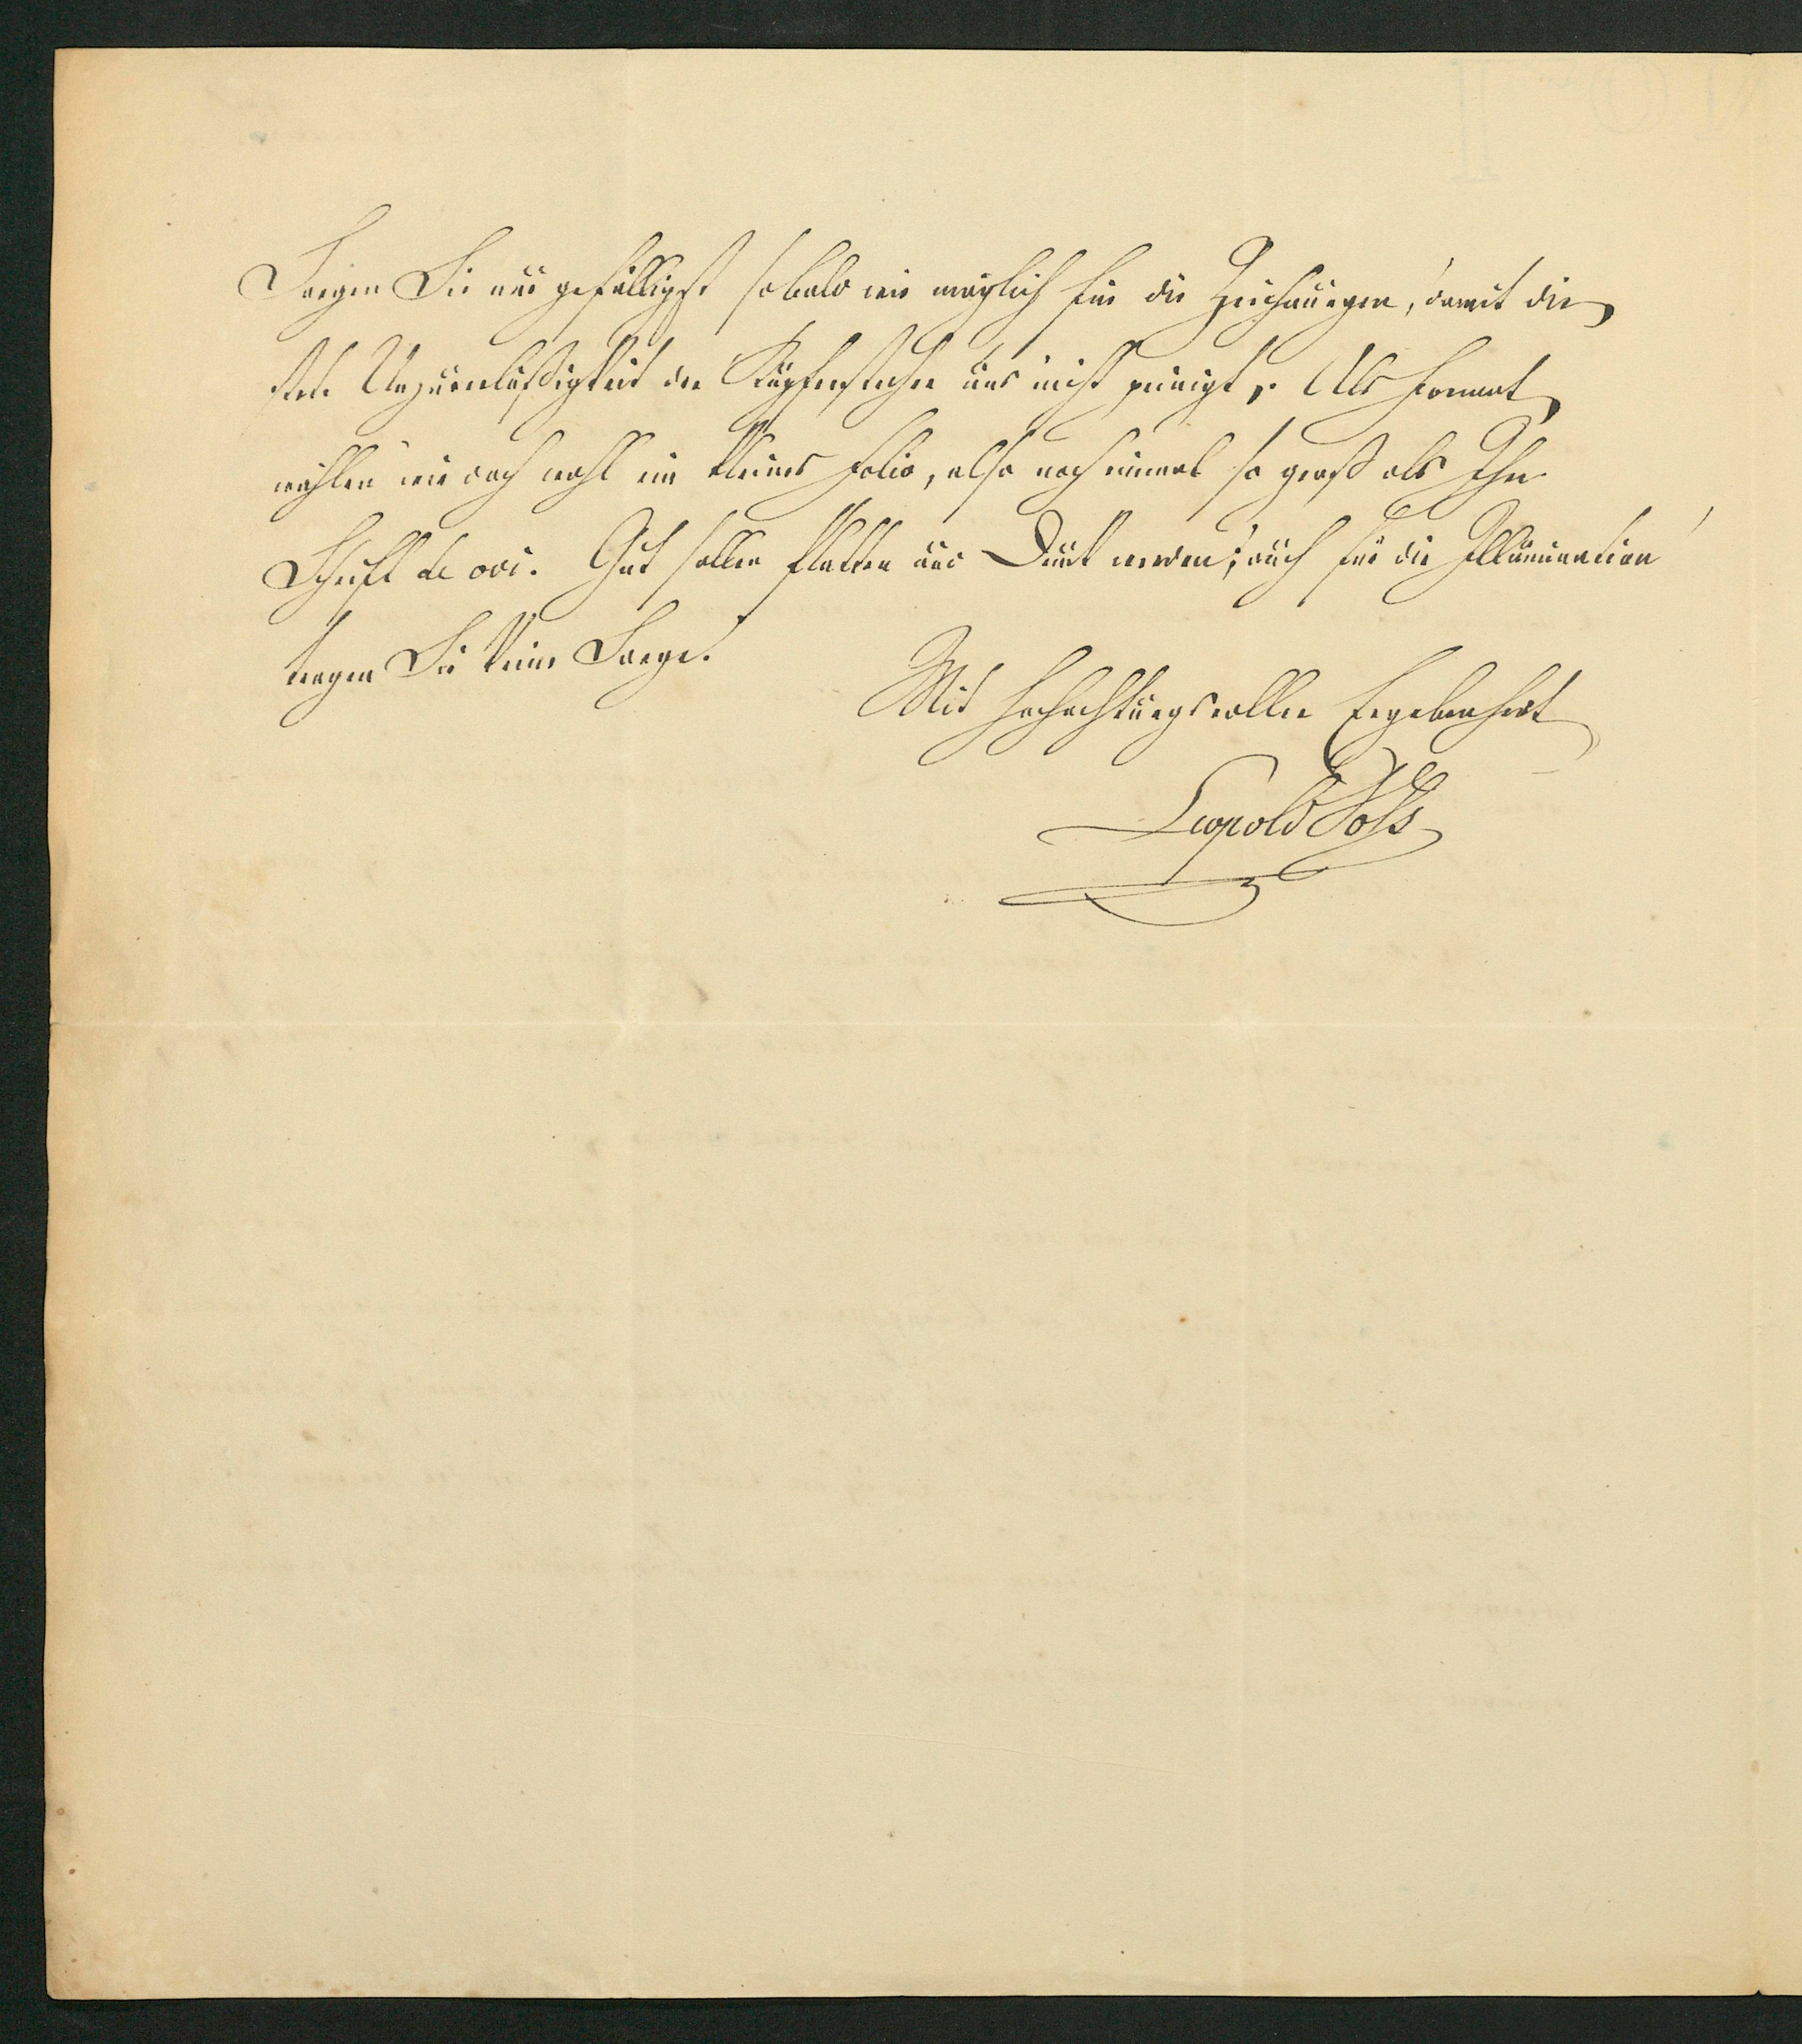 Sorgen Sie nur gefälligst sobald wie möglich für die Zeichnungen, damit die
stete Unzuverläßigkeit der Kupferstecher uns nicht peinigt. Als Format
wählen wir doch wohl ein kleines Folio, also noch einmal so groß als Ihre
Schrift de ovi. Gut sollen Platten und Druck werden; auch für die Illumination
tragen Sie keine Sorge.
Mit hochachtungsvoller Ergebenheit
Leopold Voß